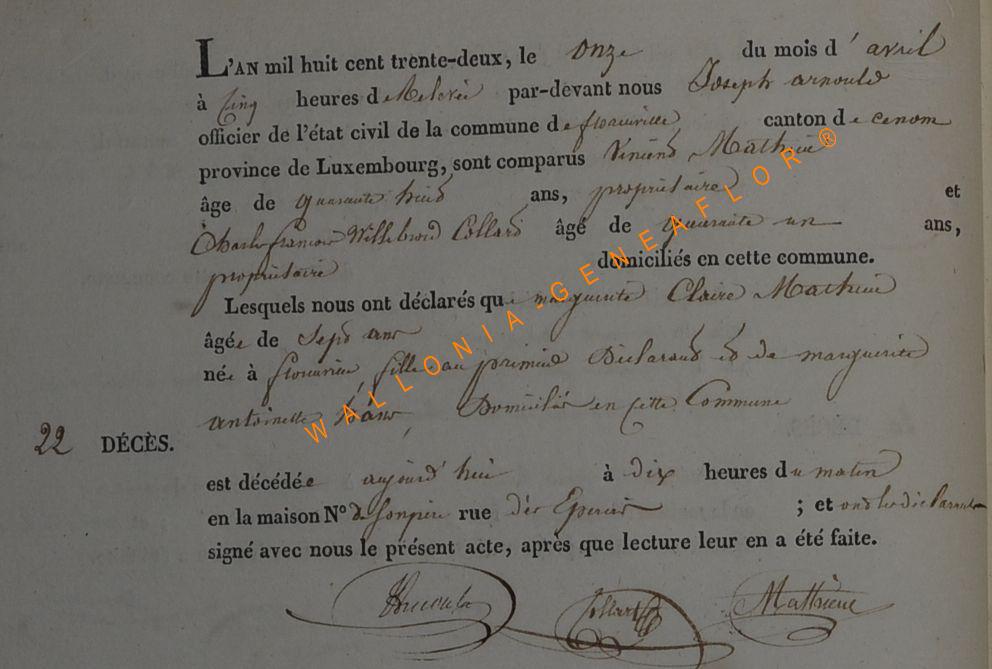 L'AN mil huit cent trente-deux, le onze du mois d'avril
à Cinq heures de Relevée par-devant nous Joseph arnould
officier de l'état civil de la commune de florenville canton de
province de Luxembourg, sont comparus Mathieu
âge de quarante huit ans, propriétaire et
Charles francois Willebrord Collard âgé de quarante un ans,
propriétaire domiciliés en cette commune.
Lesquels nous ont déclarés que marguerite Claire Mathieu
âgée de Sept ans
née à fille au premier Déclarant et de marguerite
antoinette Domiciliés en cette Commune
22 DÉCÈS.
est décédée aujourd'hui à dix heures du matin
en la maison No de Son père rue des Epeires ; et ont les dits
signé avec nous le présent acte, après que lecture leur en a été faite.
Collard Mathieu
WALLONIA-GENEAFLOR ®